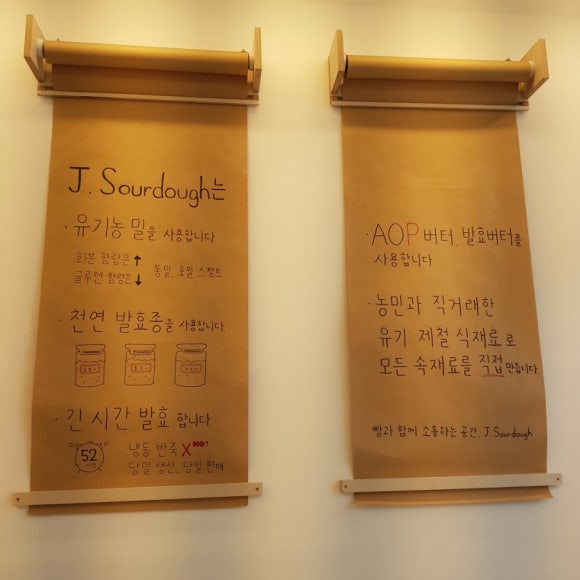 J. Sourdough는
· 유기농 밀을 사용합니다.
회분 함량은 ↑
글루텐 함량은 ↓
통밀, 호밀 스펠트
· 천연 발효종을 사용합니다.
· 긴 시간 발효 합니다
52
시간
냉동 반죽 X NO!
당일 생산, 당일 판매
· AOP 버터, 발효버터를
사용합니다.
· 농민과 직거래한
유기 제철 식재료로
모든 속재료를 직접 만듭니다.
빵과 함께 소통하는 공간, J Sourdough